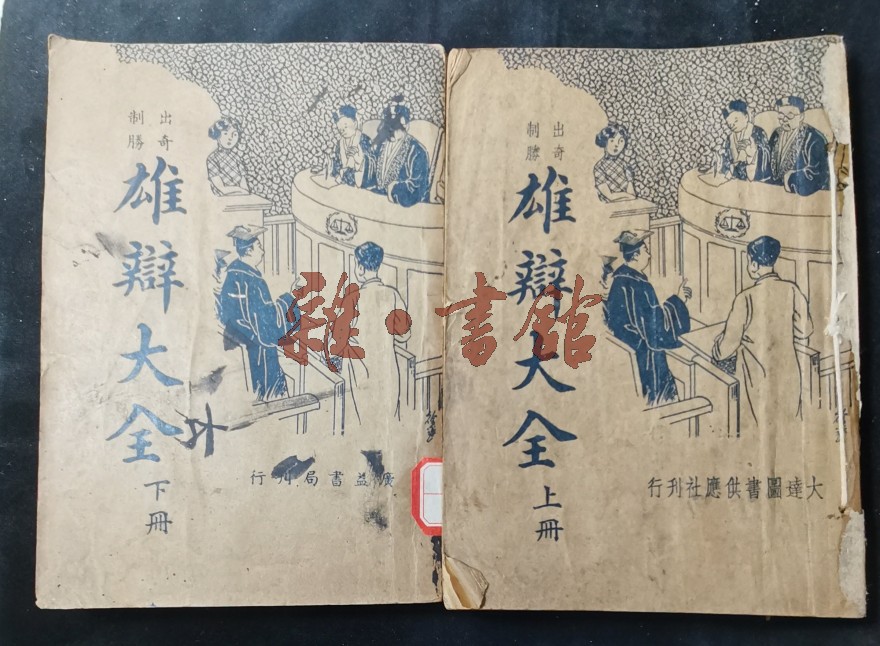 出奇
制勝
雄辯大全
下冊
廣益書局刊行
出奇
制勝
雄辯大全
上冊
大達圖書供應社刊行
雜·書館